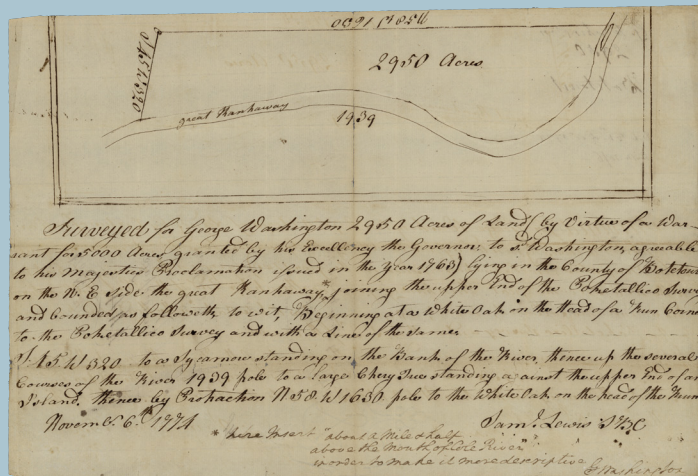 N 58 W 1630
2950 Acres
S 45 W 320
great Kanhaway
1939
Surveyed for George Washington 2950 Acres of Land (by Virtue of a War-
rant for 5000 Acres granted by his Excellency the Governor to sd. Washington, agreeable
to his Majesties Proclamation issued in the Year 1763) lying in the County of Botetourt
on the N. E. side the great Kanhaway * joining the upper End of the Poketallico Survey
and bounded as followeth, to wit, Beginning at a White Oak on the Head of a Run Corner
to the Poketallico Survey and with a Line of the same
S. 45 W 320 to a Sycamow standing on the Bank of the River, thence up the several
Courses of the River 1939 pole to a large Chery Tree standing against the upper End of an
Island. thence by Protraction N 58 W 1630 pole to the White Oak on the head of the Run
Novembr. 6.th 1774
Saml. Lewis
* here Insert "about a Mile & half
above the Mouth of Cole River"
in order to make it more descriptive
G Washington